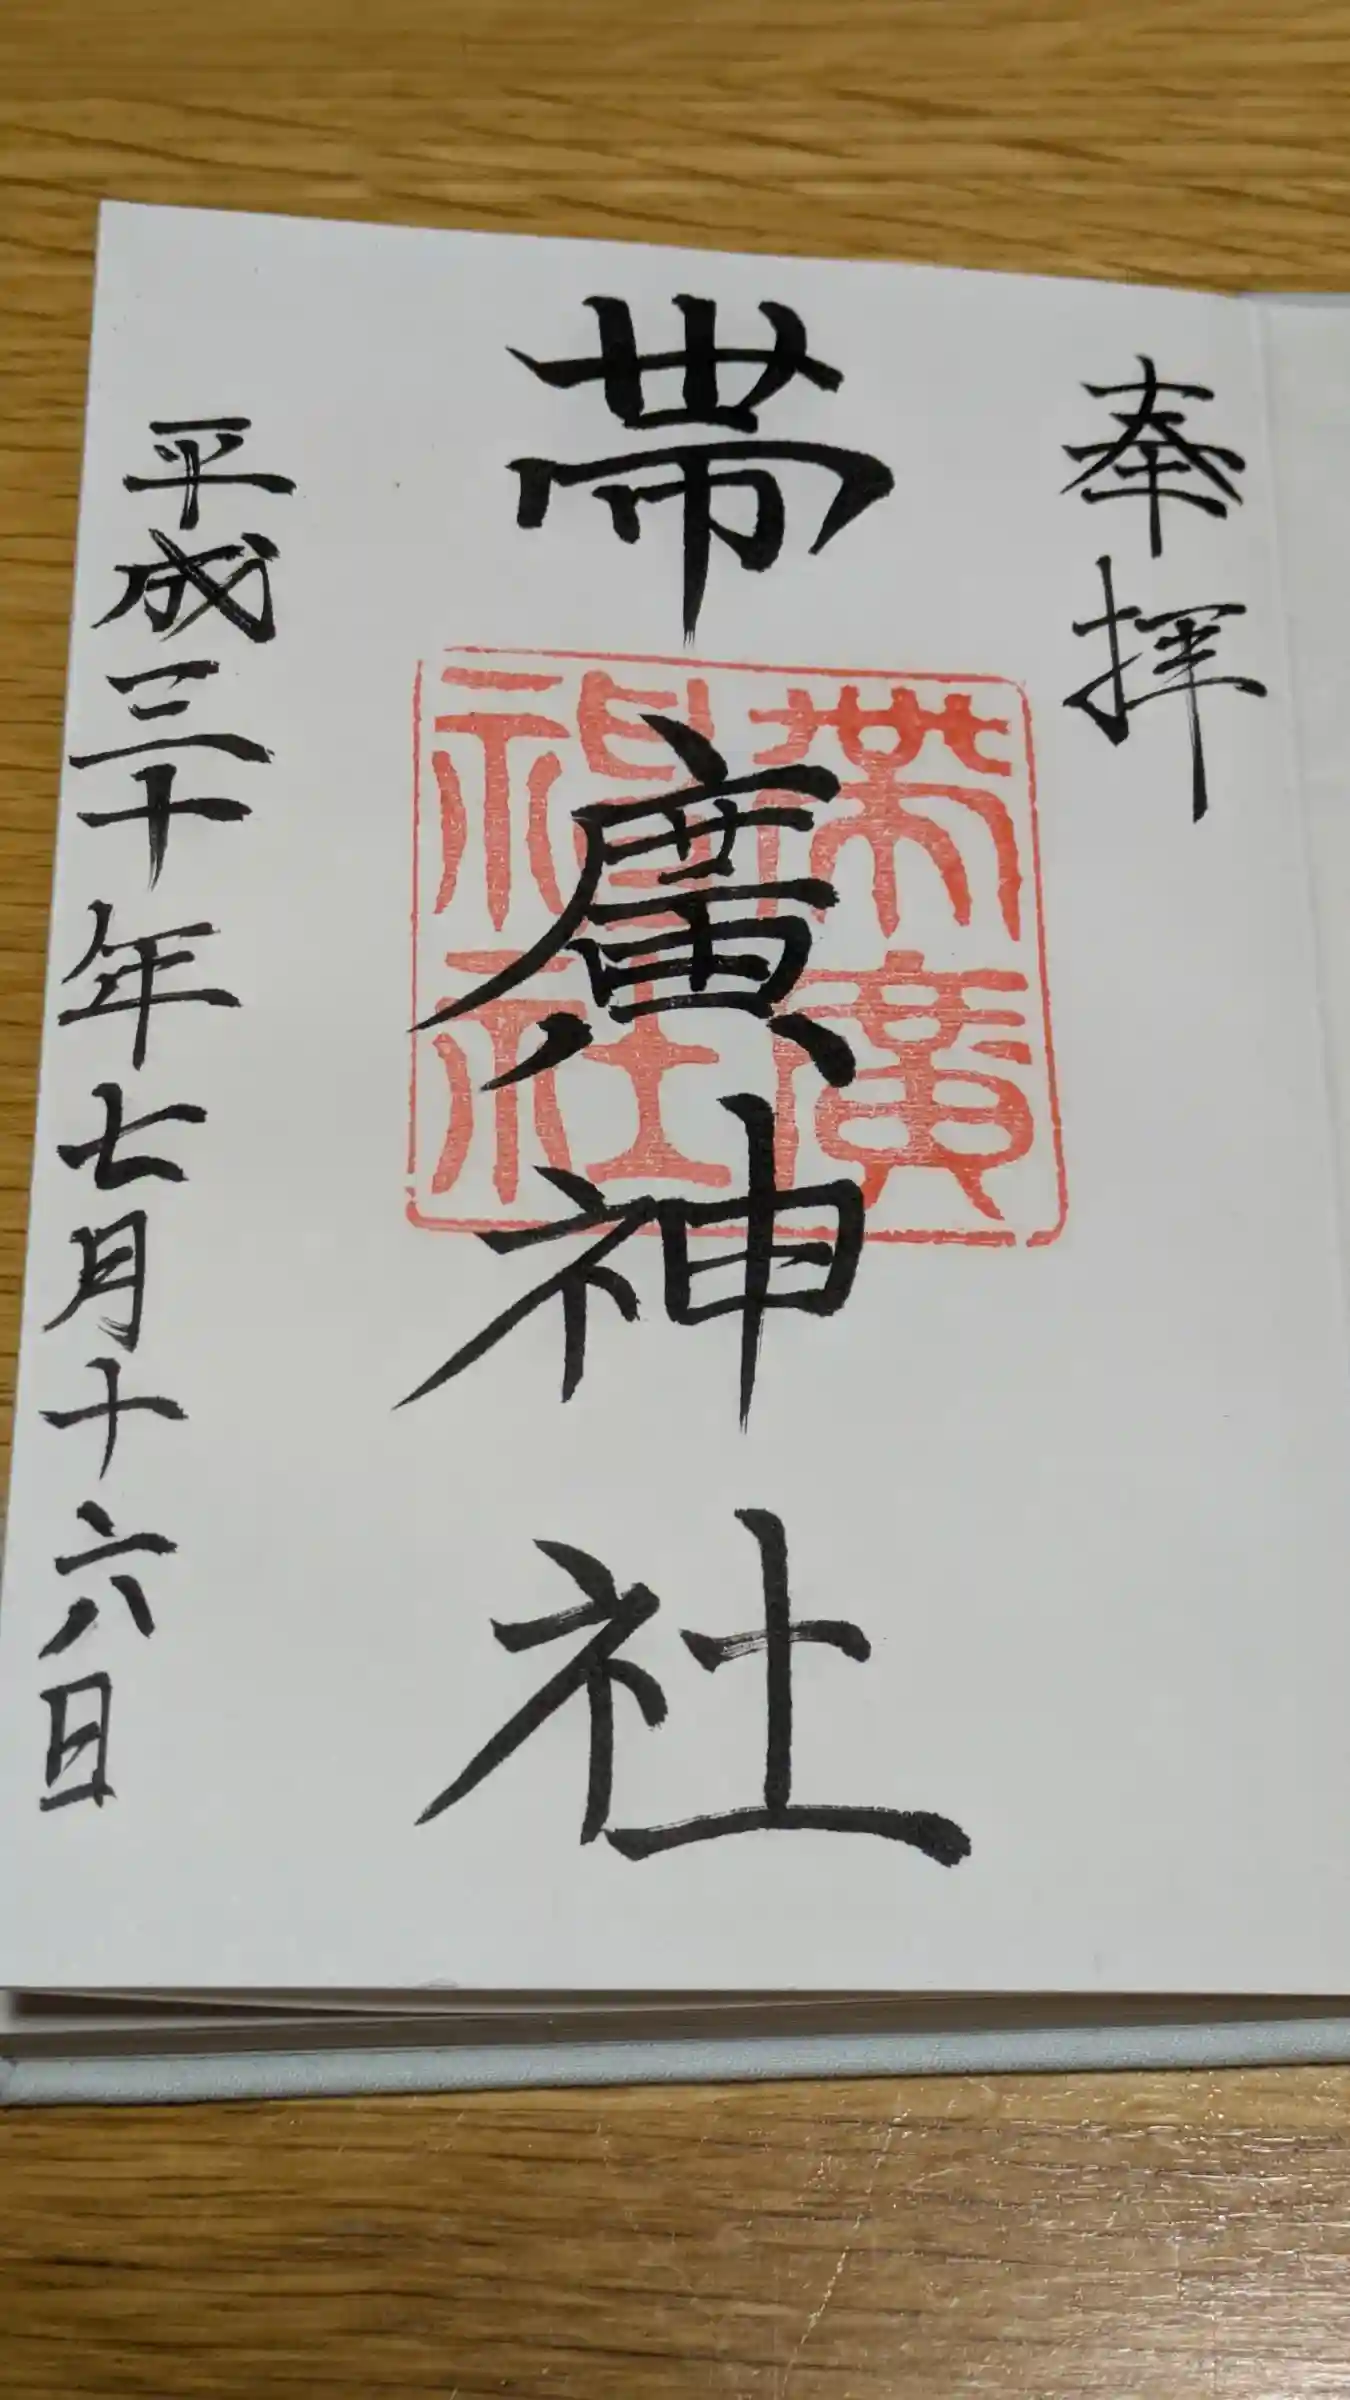 奉拝
帯廣神社
帯廣
神社
平成三十年七月十六日